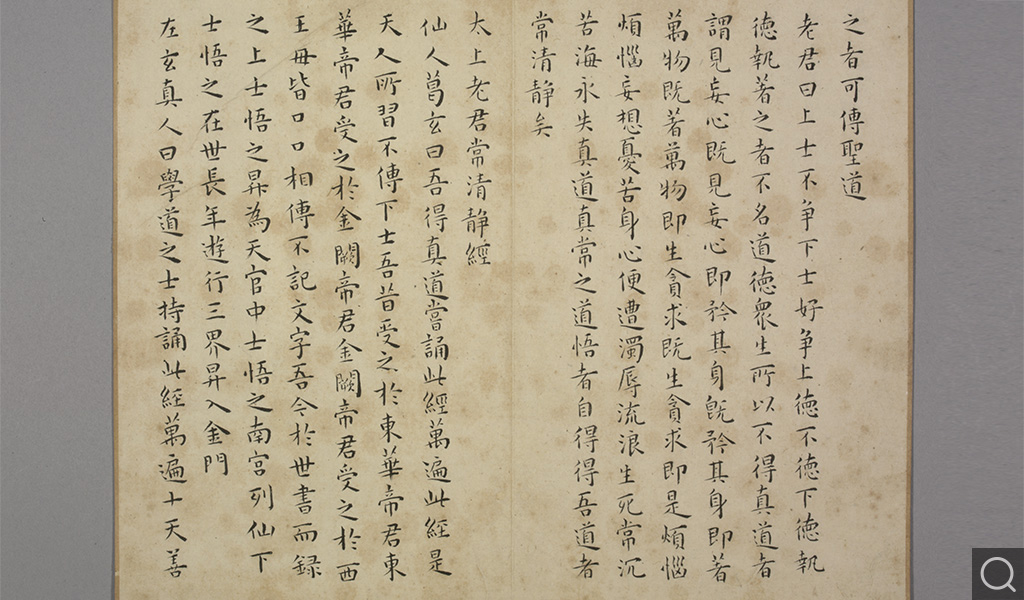 之者可傳聖道
老君曰上士不争下士好争上德不德下德執
德執著之者不名道德衆生所以不得真道者
謂見妄心既見妄心即矜其身既矜其身即著
萬物既著萬物即生貪求既生貪求即是煩惱
煩惱妄想憂苦身心便遭濁辱流浪生死常沉
苦海永失真道真常之道悟者自得得吾道者
常清静矣
太上老君常清静經
仙人葛玄曰吾得真道嘗誦此經萬遍此經是
天人所習不傳下士吾昔受之於東華帝君東
華帝君受之於金闕帝君金闕帝君受之於西
王母皆口口相傳不記文字吾今於世書而録
之上士悟之昇為天官中士悟之南宫列仙下
士悟之在世長年遊行三界昇入金門
左玄真人曰學道之士持誦此經萬遍十天善